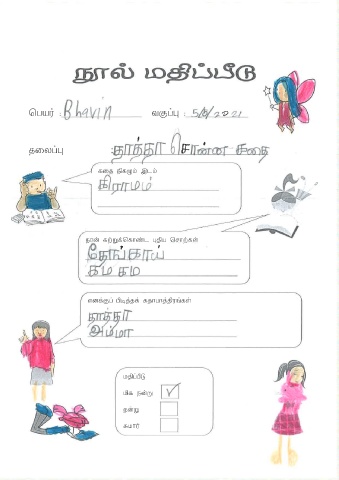 நூல் மதிப்பீடு
பெயர் : Bhavin வகுப்பு : 5/8/2021
தலைப்பு தாத்தா சொன்ன கதை
கதை நிகழும் இடம்
கிராமம்
நான் கற்றுக்கொண்ட புதிய சொற்கள்
தேங்காய்
கம கம
எனக்குப் பிடித்தக் கதாபாத்திரங்கள்
தாத்தா
அம்மா
மதிப்பீடு
மிக நன்று
நன்று
சுமார்